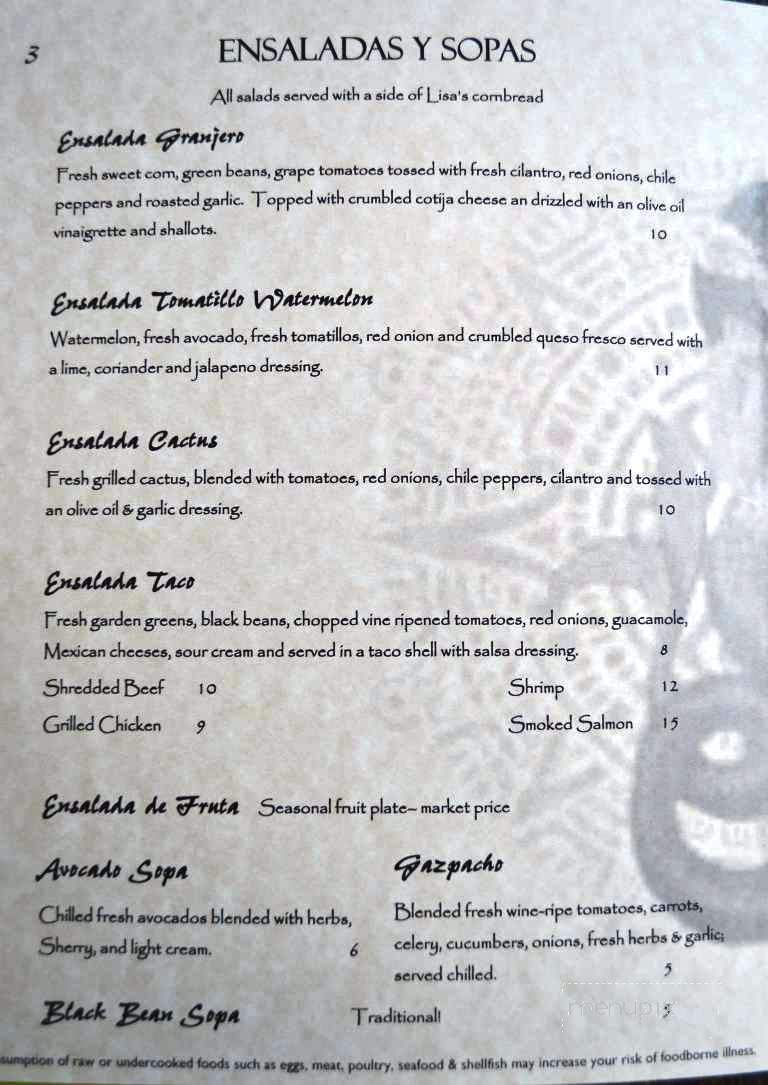 3
ENSALADAS Y SOPAS
All salads served with a side of Lisa's cornbread
Ensalada Granjero
Fresh sweet corn, green beans, grape tomatoes tossed with fresh cilantro, red onions, chile
peppers and roasted garlic. Topped with crumbled cotija cheese an drizzled with an olive oil
vinaigrette and shallots. 10
Ensalada Tomatillo Watermelon
Watermelon, fresh avocado, fresh tomatillos, red onion and crumbled queso fresco served with
a lime, coriander and jalapeno dressing. 11
Ensalada Cactus
Fresh grilled cactus, blended with tomatoes, red onions, chile peppers, cilantro and tossed with
an olive oil & garlic dressing. 10
Ensalada Taco
Fresh garden greens, black beans, chopped vine ripened tomatoes, red onions, guacamole,
Mexican cheeses, sour cream and served in a taco shell with salsa dressing. 8
Shredded Beef 10 Shrimp 12
Grilled Chicken 9 Smoked Salmon 15
Ensalada de Fruta Seasonal fruit plate– market price
Avocado Sopa
Chilled fresh avocados blended with herbs,
Sherry, and light cream. 6
Gazpacho
Blended fresh wine-ripe tomatoes, carrots,
celery, cucumbers, onions, fresh herbs & garlic;
served chilled. 5
Black Bean Sopa Traditional! 5
menupix
sumption of raw or undercooked foods such as eggs, meat, poultry, seafood & shellfish may increase your risk of foodborne illness.